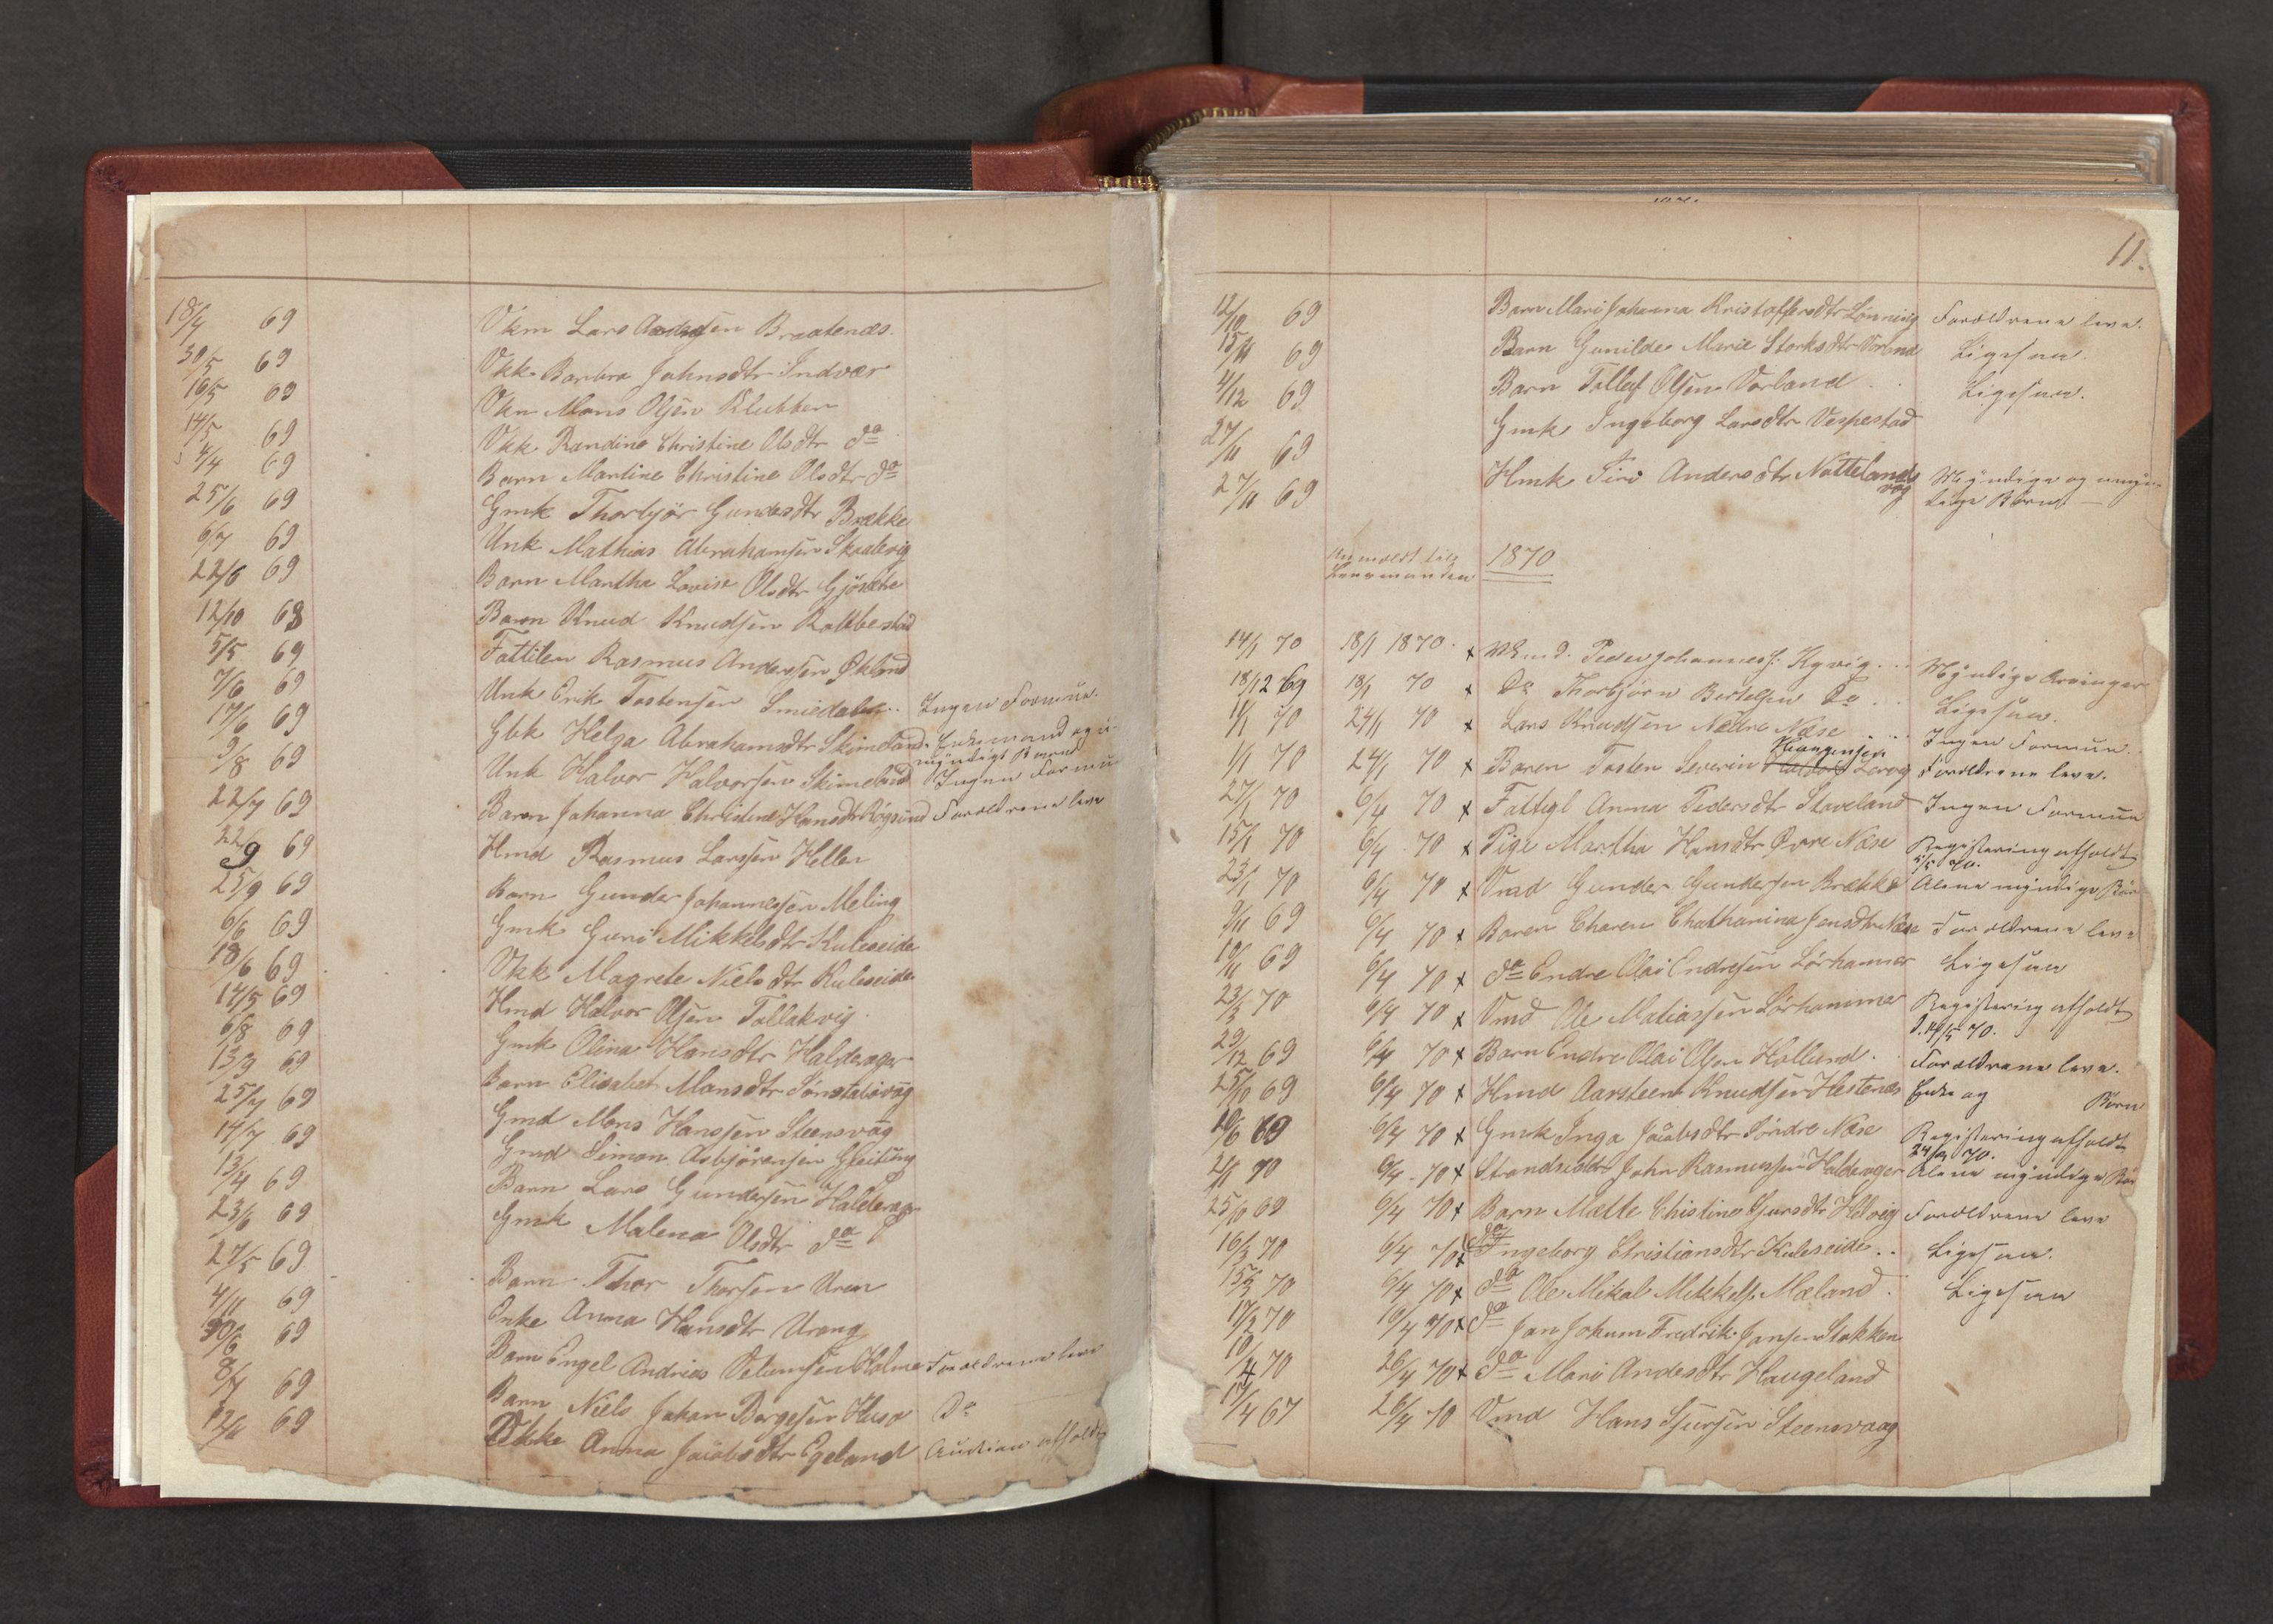 18/4 69 Vkm Lars Andersen Braatenæs.
30/5 69 Vkk Barbra Johnsdtr Indvær
16/5 69 Vkn Mons Olsen Klubben
14/5 69 Vkk Randine Christine Olsdtr do
4/4 69 Barn Martine Christine Olsdtr do
25/6 69 Gmk Thorbjør Gundersdtr Brække
6/7 69 Unk Mathias Abrahamsen Skaalevig
22/6 69 Barn Martha Lovise Olsdtr Gjøsæter
12/10 68 Barn Knud Knudsen Rabbestad
5/5 69 Fattilem Rasmus Andersen Økland
7/6 69 Unk Erik Tostensen Smiedalen .. Ingen Formue.
17/6 69 Gbk Helga Abrahamsdtr Skimeland. Enkemand og u-
myndige Børn
9/8 69 Unk Halvor Halvorsen Skimeland Ingen Formue
22/7 69 Baren Johanna Christine Hansdtr Røgsund Forældrene leve
22/9 69 Hmd Rasmus Larssen Heller
25/9 69 Barn Gunder Johannessen Meling
6/6 69 Gmk Guro Mikkelsdtr Kuleseide
18/6 69 Vkk Magrete Nielsdtr Kuleseide
14/5 69 Hmd Halvor Olsen Tollakvig
6/8 69 Gmk Olina Hansdtr Halderager
13/3 69 Barn Elisabet Monsdtr Sønstabøvåg
25/7 69 Gmd Mons Hanssen Steensvåg
14/7 69 Gmd Simon Asbjørensen Gleitung
13/4 69 Barn Lars Gundersen Halderager
23/6 69 Gmk Malena Olsdtr do
27/5 69 Barn Thor Thorsen Uren
4/11 69 Enke Anna Hansdtr Urang
30/6 69 Barn Engel Andrias Velumsen Holme Forældrene leve
8/7 69 Barn Niels Johan Børgesen Husø Do
12/11 69 Vkke Anna Jacobsdtr Egeland Auction afholdt
11.
12/10 69 Barn Mari Johanna Kristoffersdtr Lønning Forældrene leve.
15/11 69 Barn Gunilde Marie Storksdtr Vorland Ligesaa.
4/12 69 Barn Tollef Olsen Vorland . . Ligesaa.
27/11 69 Gmk Ingeborg Larsdtr Vespestad
27/11 69 Hmk Siri Andersdtr Nottelands
våg Myndige og umyn-
dige Børn —
Anmeldt til
Lensmanden 1870
14/1 70 18/1 1870. x Peder Johanness. Kyvig ... Myndige Arvinger
18/12 69 18/1 70 x Do Thorbjørn Bertelsen Do .. Ligesaa.
11/1 70 24/1 70 x Lars Knudsen Nedre Næse ... Ingen Formue.
1/1 70 24/1 70 x Baren Tosten Severin Lervig Forældrene leve.
27/1 70 6/4 70 x Fattigl Anna Pedersdtr Staveland Ingen Formue
15/1 70 6/4 70 x Pige Martha Hansdtr Øvre Næse Registering afholdt
5/5 70.
23/1 70 6/4 70 x Vmd Gunder Gundersen Brække Alene myndige Bør
9/11 69 6/4 70 x Baren Charen Chatharina Jensdtr Næse Forældrene leve
10/11 69 6/4 70 x do Endre Olai Endresen Lørhammer Ligesaa
23/3 70 6/4 70 x Vmd Ole Matiassen Lørhammer Registering afholdt
d. 14/5 70.
29/12 69 6/4 70 x Barn Endre Olai Olsen Hollund . Forældrene leve.
25/10 69 6/4 70 x Hmd Aarsteen Knudsen Hestenæs Enke og Børn
6/4 70 x Gmk Inga Jacobsdtr Søndre Næse Registering afholdt
24/9 70.
2/1 70 6/4 70 x John Rasmussen Halderager Alene myndige Bør
25/10 69 6/4 70 x Barn Mætte Christine Gjersdtr Helvig Forældrene leve
16/3 70 6/4 70 x do Ingeborg Christiansdtr Kuleseide .. Ligesaa.
15/3 70 6/4 70 x do Ole Mikal Mikkels. Mæland . Ligesaa
17/2 70 19/4 70 x do Jan Johum Fredrik Jansen Stokken
10/4 70 26/4 70 x do Mari Andersdtr Haugeland
17/4 67 26/4 70 Vmd Hans Sjursen Steensvaag